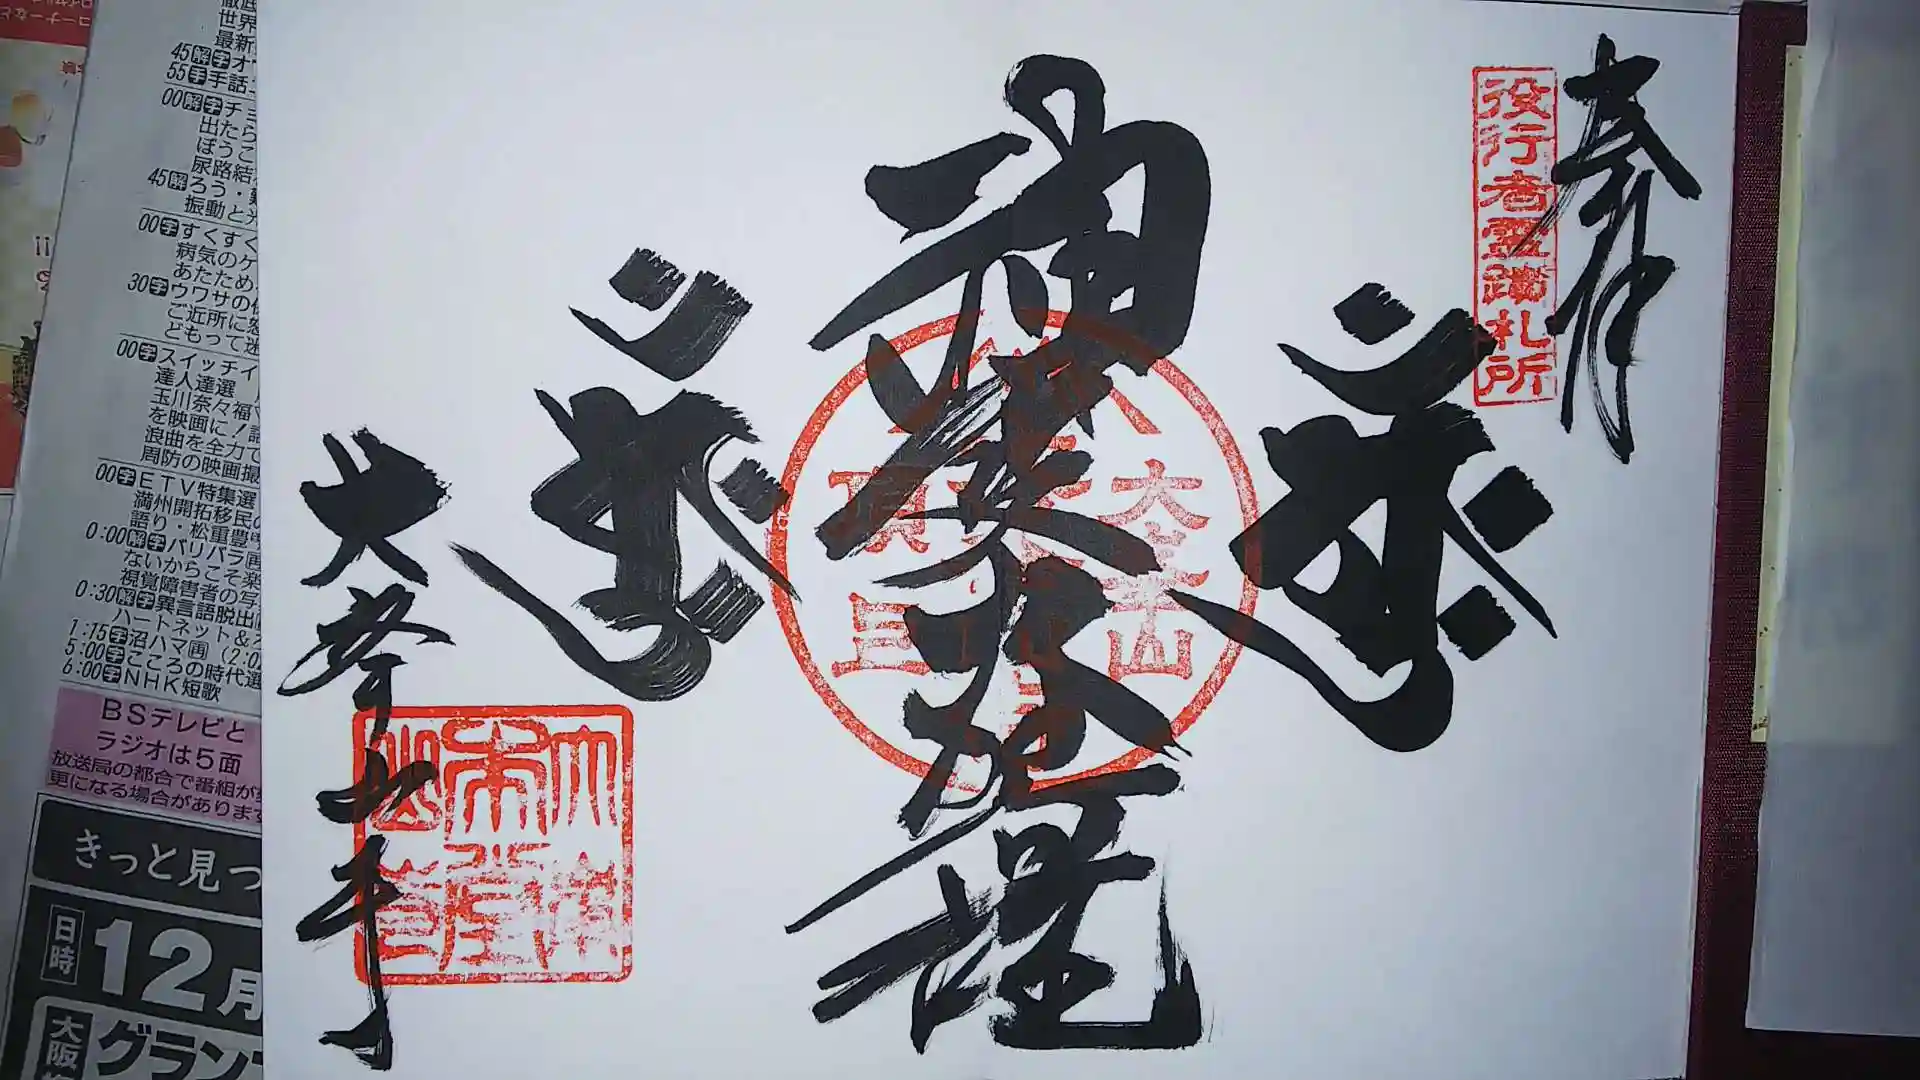 奉拝
役行者霊蹟札所
神変大菩薩
大峯山
頂上
大峯山寺
コーナーなど
世界
最新
45解字オ
55手手話
00解字チョ
出たら
ぼうこ
尿路結
45解ろう・難
振動と光
00字すくすく
病気のケ
あたため
30字ウワサの保
ご近所に怒
どもって迷
00字スイッチイ
達人達選
玉川奈々福
を映画に!
浪曲を全力で
周防の映画撮
00字ETV特集選
満州開拓移民の
語り・松重豊
0:00解字バリバラ画
ないからこそ楽
視覚障害者の写
0:30解字異言語脱出
ハートネット&
1:15字沼ハマ画(2:0
5:00字こころの時代選
6:00字NHK短歌
BSテレビと
ラジオは5面
放送局の都合で番組が変
更になる場合があります
きっと見つ
日時
12月
大阪
グラン